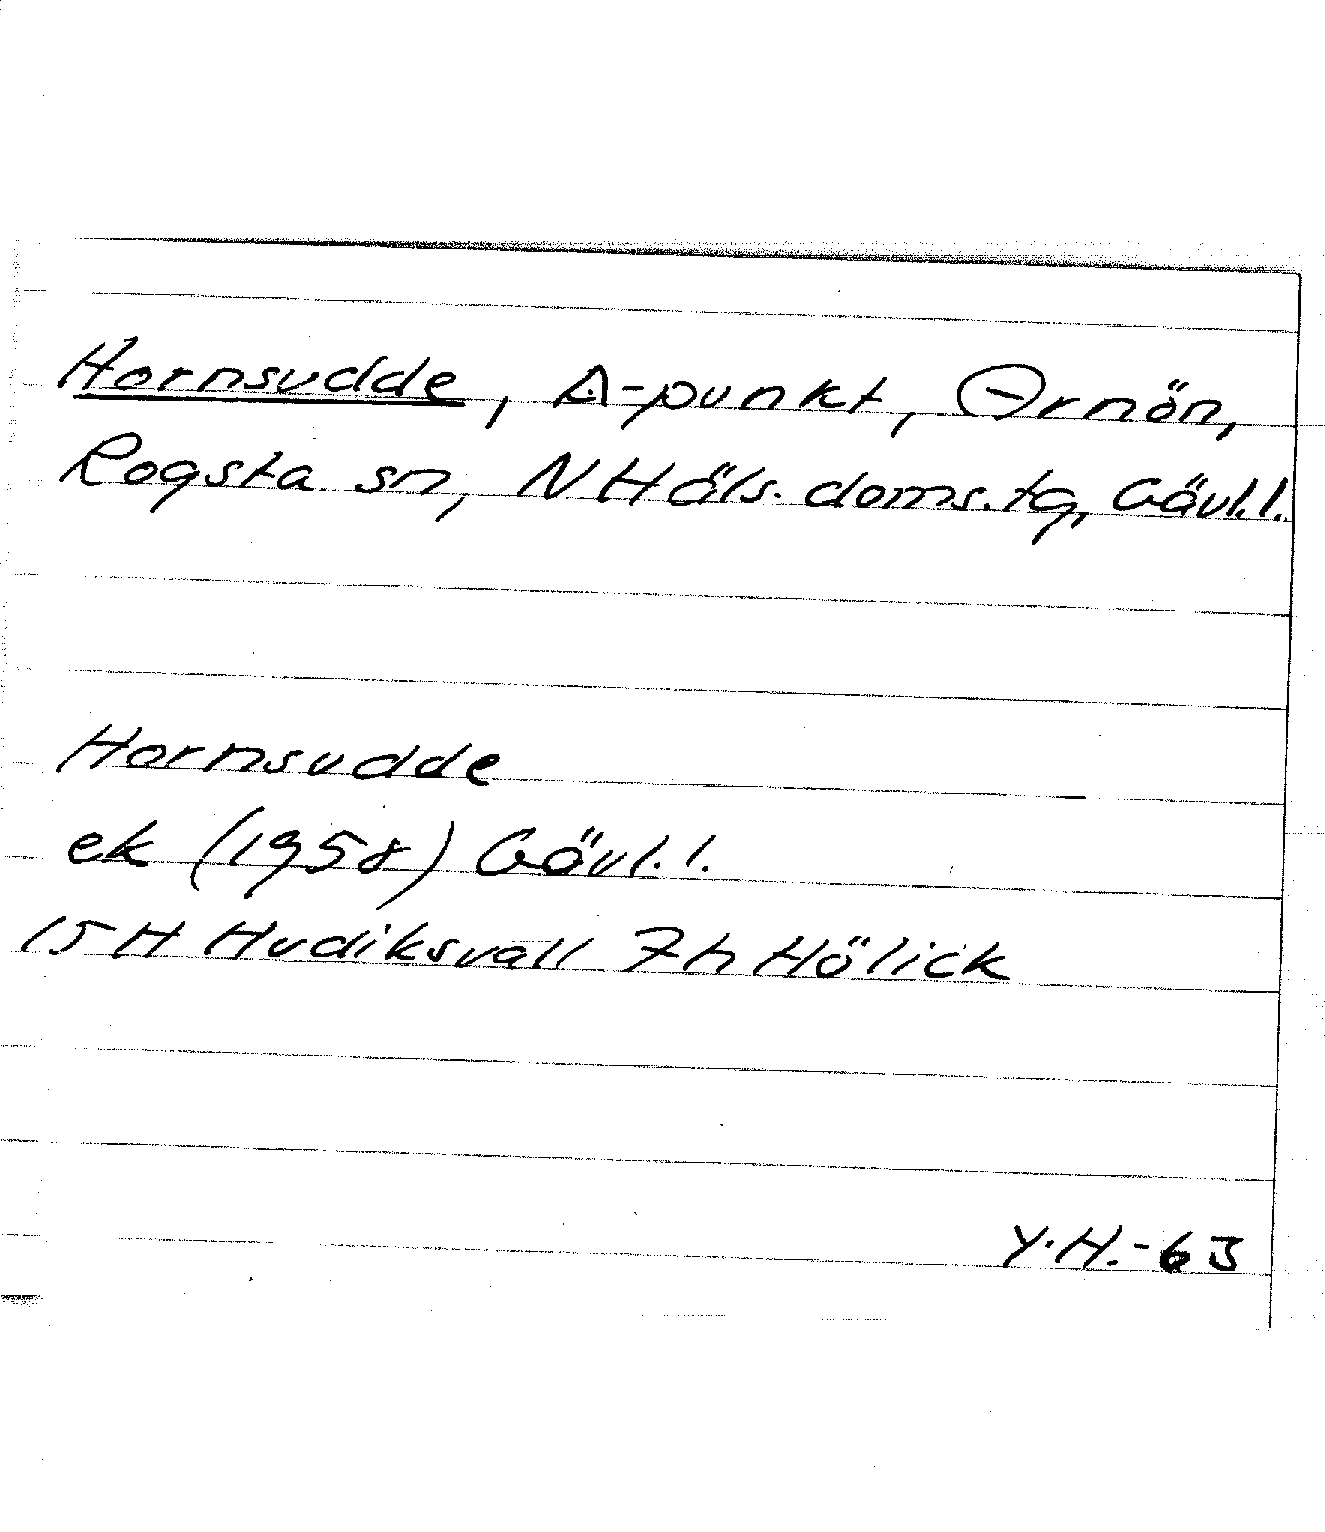 Hornsudde, △-punkt, Arnön,
Rogsta sn, N Häls. doms.tg, Gävl.l.
Hornsudde
ek (1958) Gävl.l.
15 H Hudiksvall 7h Hölick
Y.H.-63